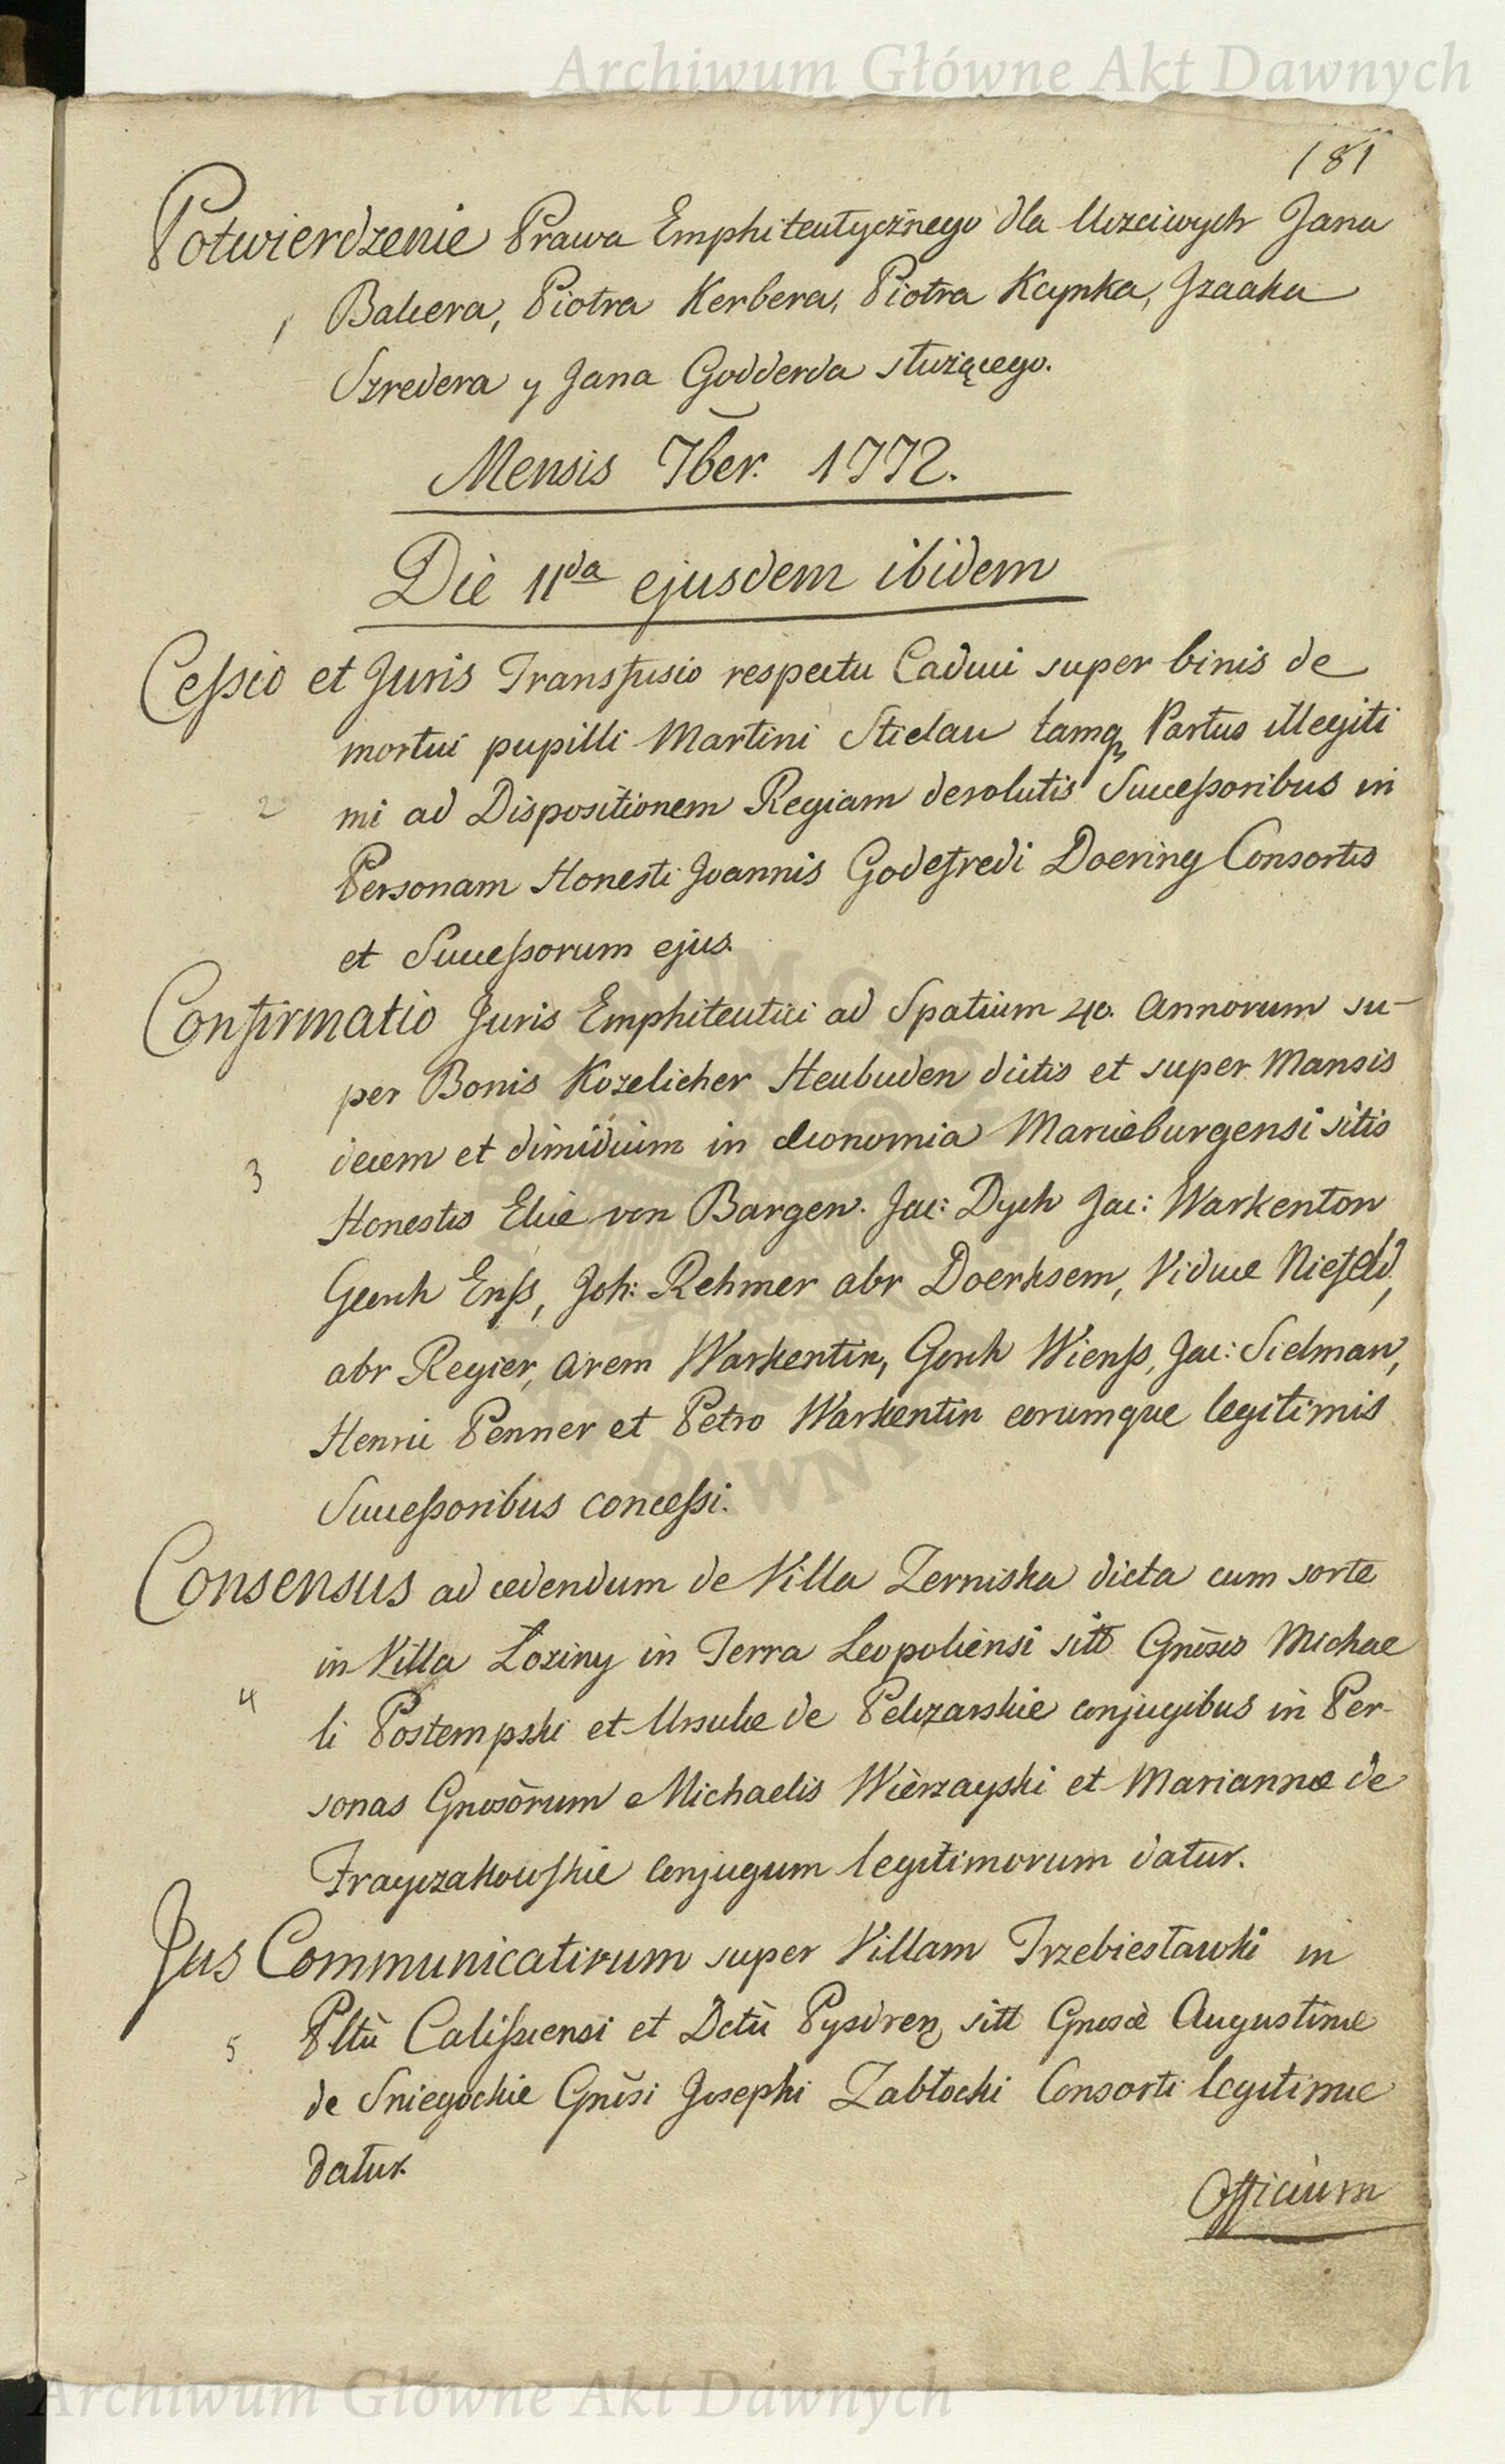 Archiwum Główne Akt Dawnych
181
Potwierdzenie Prawa Emphiteutycznego dla Uczciwych Jana
1 Bakera, Piotra Kerbera, Piotra Kaynka, Jzaaka
Szredera y Jana Godderda służącego.
Mensis 7ber. 1772.
Die 11da ejusdem ibidem
Cessio et Juris Transfusio respectu Caduci super binis de
mortui pupilli Martini Stielau tamq Partus illegiti
2 mi ad Dispositionem Regiam devolutis Successoribus in
Personam Honesti Joannis Godefredi Doering Consortis
et Successorum ejus.
Confirmatio Juris Emphiteutici ad Spatium 40. Annorum su-
per Bonis Kozelicher Heubuden dictis et super Mansis
3 decem et dimidium in Œconomia Marieburgensi sitis
Honestis Eliæ von Bargen. Jac: Dych Jac: Warkenton
Geerch Enss, Joh: Rehmer abr Doerksem, Viduæ Niefeld,
abr Regier, Arem Warkentin, Gerch Wienss, Jac: Sielman,
Henric Penner et Petro Warkentin eorumque legitimis
Successoribus concessi.
Consensus ad cedendum de Villa Zerniska dicta cum sorte
in Villa Łoziny in Terra Leopoliensi sitt Gnosis Michae
4 li Postempski et Ursulæ de Pelczarskie conjugibus in Per-
sonas Gnosorum Michaelis Wierzayski et Mariannæ de
Trayczakowskie Conjugum legitimorum datur.
Jus Communicativum super Villam Trzebiesławki in
5 Pltu Calissiensi et Dctu Pysdren sitt Gnosæ Augustinæ
de Sniegockie Gnosi Josephi Zabłocki Consorti legitimæ
datur.
Officium
Archiwum Główne Akt Dawnych